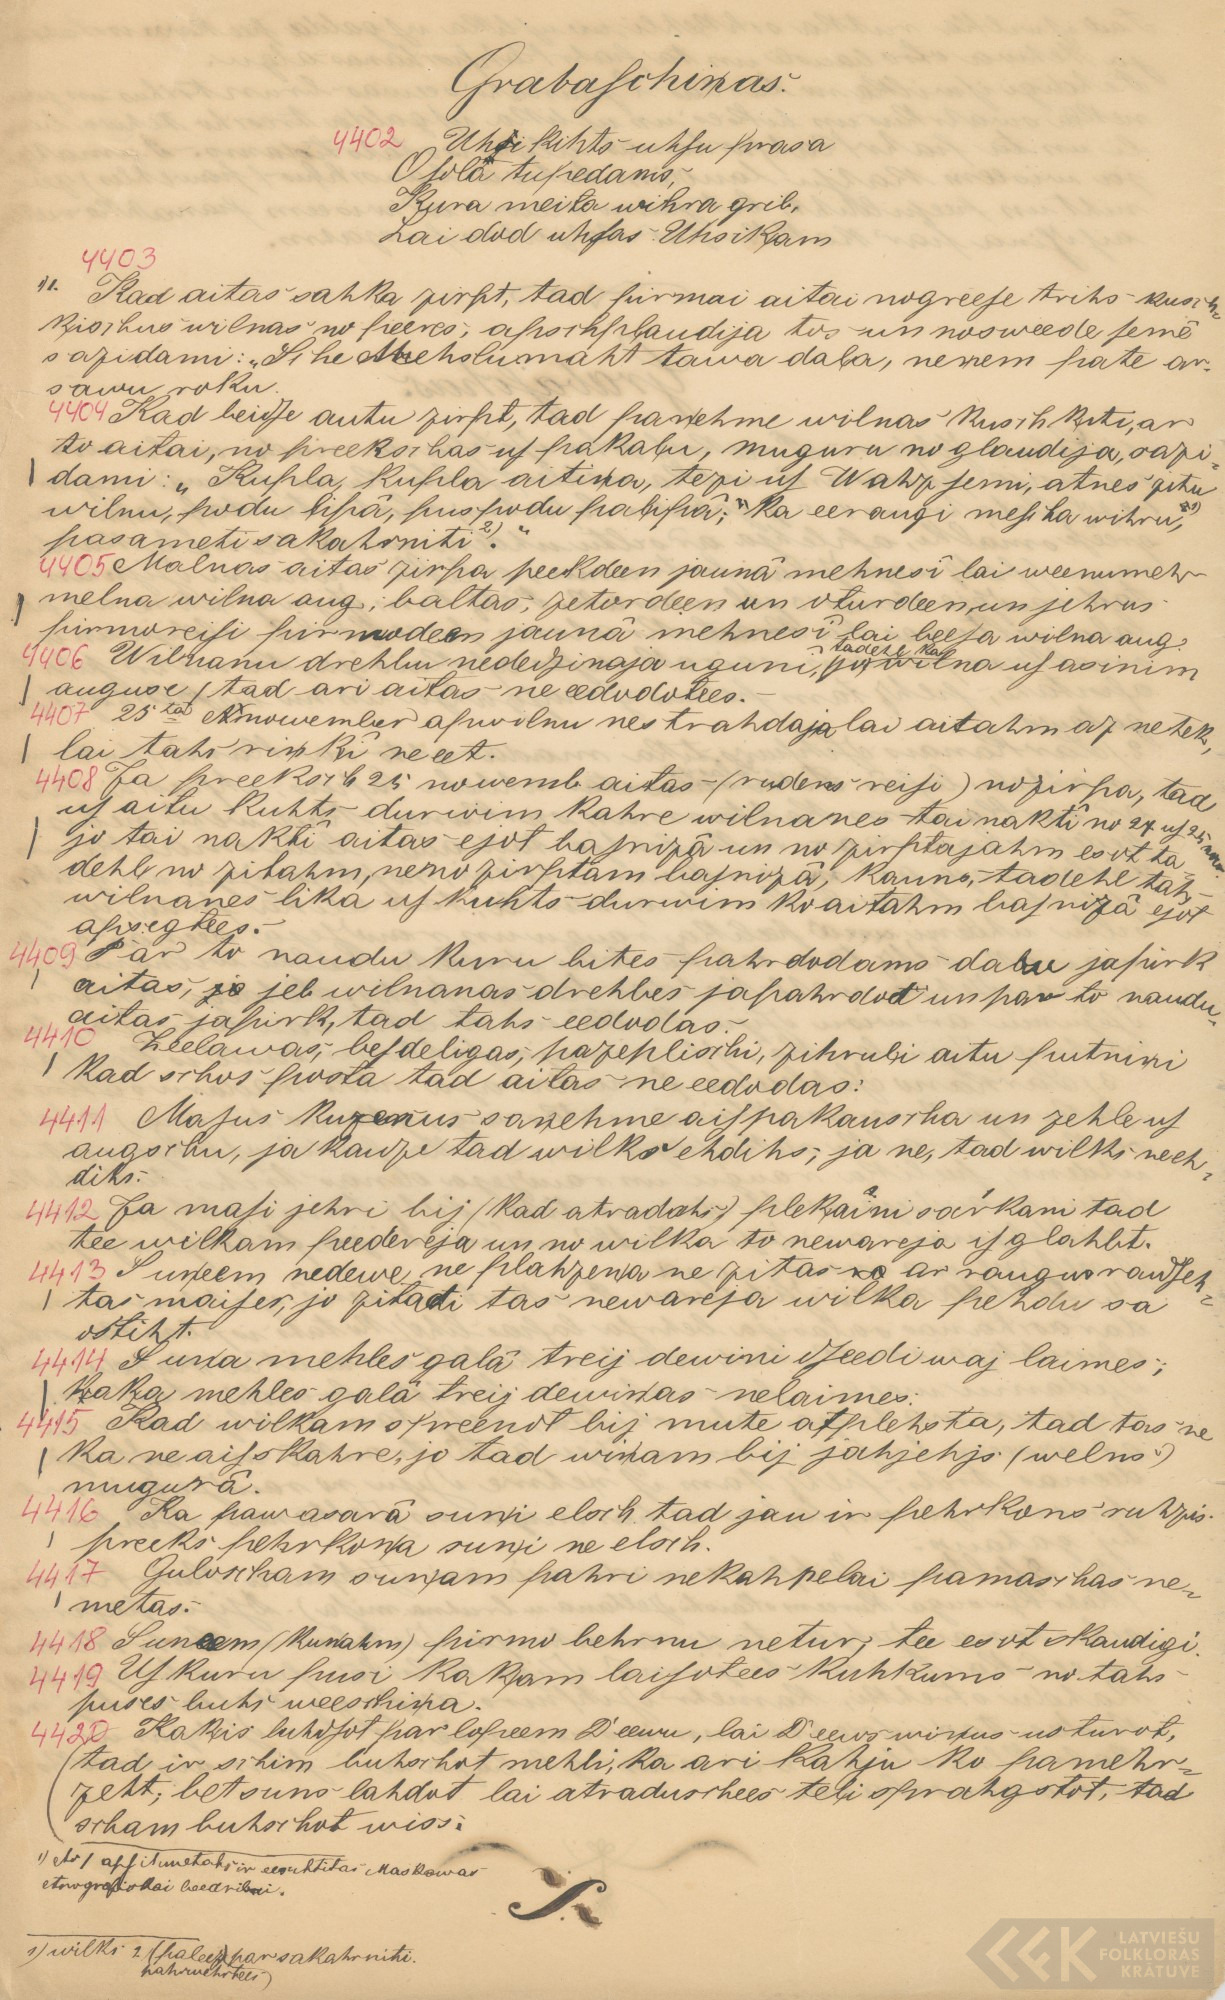 Grabaschiņas.
4402 Uhsiņ kihts uhsu prasa
Osolâ tupedams,
Kura meita wihra grib,
Lai dod uhsas Uhsiķam
4403
1). Kad aitas sahka zirpt, tad pirmai aitai nogreese trihs kusch=
kischus wilnas no peeres, apschplaudija tos un nosweede semê
sazidami: „Sche Mehslu maht tawa dala, neņem pate ar
sawu roku.
4404 Kad beidse autu zirpt, tad paņehme wilnas kuschķiti, ar
to aitai, no preekschas us pakaļu, muguru noglaudija, sazi=
dami: „Kupla, kupla aitiņa, tezi us Wahzsemi, atnes zitu
wilnu, podu lipâ, puspodu palipâ; ka eeraugi mescha wihru,
pasameti sakahrniti 2)."
4405 Malnas aitas zirpa peekdeen jaunâ mehnesî lai weenumehr
melna wilna aug; baltas, zetordeen un oturdeen, un jehrus
pirmoreisi pirmodeen jaunâ mehnesî lai beesa wilna aug.
4406 Wilnanu drehbu nededzinaja uguni, tadehl ka wilna us asinim
auguse, tad ari aitas ne eedodotees.
4407 25tâ nowember ap wilnu nestrahdaja lai aitahm az netek,
lai tahs riņkî neeet.
4408 Ja preeksch 25 nowemb. aitas (rudens reisi) nozirpa, tad
us aitu kuhts durwim kahre wilnanes tai naktî no 24 us 25 now.
jo tai naktî aitas ejot basnizâ un nozirptajahm esot tâ
dehl no zitahm, nenozirptam basnizâ, kauns, tadehl tahs
wilnanes lika us kuhts durwim ko aitahm basnizâ ejot
apsegtees.
4409 Par to naudu kuru bites pahrdodams dabu japirk
aitas, jeb wilnanas drehbes japahrdod un par to naudu
aitas japirk, tad tahs eedodas.
4410 Zeelawas, besdeligas, pazeplischi, zihruli aitu putniņi
kad schos posta tad aitas ne eedodas.
4411 Masus kuzenus saņehme aispakauscha un zehle us
augschu, ja kauze tad wilks ehdihs, ja ne, tad wilks neeh=
dihs.
4412 Ja masi jehri bij (kad atradahs) pleķaini sarkani tad
tee wilkam peedereja un no wilka to newareja isglahbt.
4413 Suņeem nedewe ne plahzeņa ne zitas ar raugu raudseh=
tas maises, jo zitadi tas newareja wilka pehdu sa
ostiht.
4414 Suņa mehles galâ treij dewiņi dseedi waj laimes;
kaķa mehles galâ treij dewiņas nelaimes.
4415 Kad wilkam spreenot bij mute atplehsta, tad tas ne
ka ne aisskahre, jo tad wiņam bij jahjehjs (welns)
mugurâ.
4416 Ka pawasarâ suņi elsch tad jau ir pehrkons ruhzis.
preeks pehrkoņa suņi ne elsch.
4417 Guloscham suņam pahri nekahpe lai pamaschas ne=
metas.
4418 Suņeem (kuņahm) pirmo behrnu netur; tee esot skaudigi.
4419 Us kuru pusi kaķam laisotees kuhkums no tahs
puses buhs weeschiņa.
4420 Kaķis luhdsot par lopeem Deewu, lai Deews wiņus usturot,
tad ir schim buhschot mehli, ka ari kahju ko pamehr=
zeht; bet suns lahdot lai atraduschees teļi sprahgstot, tad
scham buhschot wiss.
1) apsihmetahs ir eesuhtitas Maskawas
etnografiskai beedribai.
2) wilks 2 (paleez par sakahrniti.
pahrwehrtees)
LATVIEŠU
FOLKLORAS
KRĀTUVE